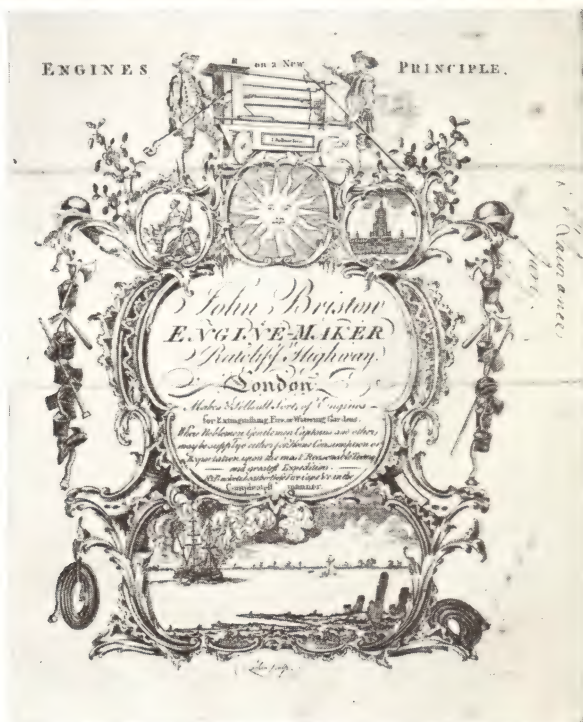 ENGINES on a New PRINCIPLE.
John Bristow
ENGINE-MAKER
Ratcliff Highway
London
Makes & Sells all Sorts of Engines
for Extinguishing Fires or Watering Gardens.
Where Noblemen Gentlemen Captains and others
may be supply'd either for Home Consumption or
Exportation upon the most Reasonable Terms
and greatest Expedition.
NB Buckets Leather Caps &c in the
Compleatest manner.